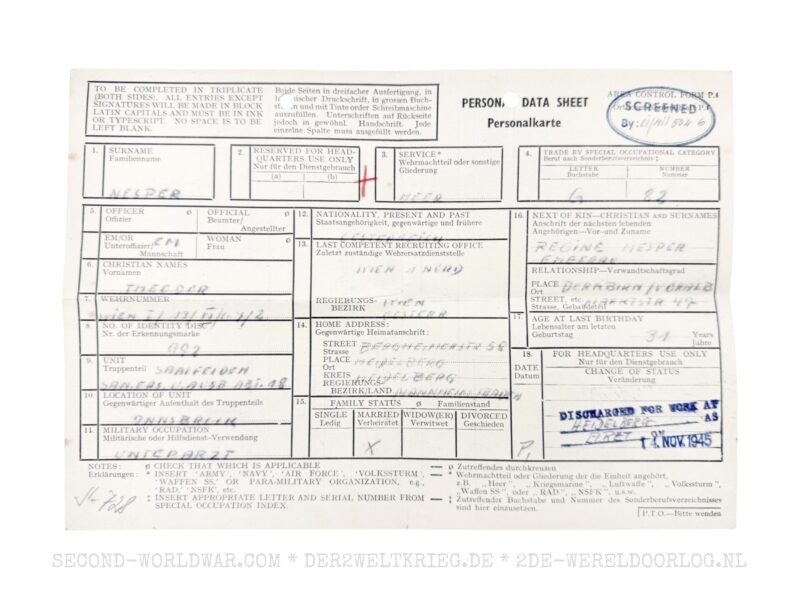 TO BE COMPLETED IN TRIPLICATE
(BOTH SIDES). ALL ENTRIES EXCEPT
SIGNATURES WILL BE MADE IN BLOCK
LATIN CAPITALS AND MUST BE IN INK
OR TYPESCRIPT. NO SPACE IS TO BE
LEFT BLANK.
Beide Seiten in dreifacher Ausfertigung, in
Druckschrift, in grossen Buch-
und mit Tinte oder Schreibmaschine
auszufüllen. Unterschriften auf Rückseite
jedoch in gewöhnl. Handschrift. Jede
einzelne Spalte muss ausgefüllt werden.
PERSONAL DATA SHEET
Personalkarte
AREA CONTROL FORM P.4
SCREENED
By:
1. SURNAME
Familienname
NESPER
2. RESERVED FOR HEAD-
QUARTERS USE ONLY
Nur für den Dienstgebrauch
(a) (b)
3. SERVICE*
Wehrmachtteil oder sonstige
Gliederung
HEER
4. TRADE BY SPECIAL OCCUPATIONAL CATEGORY
Beruf nach Sonderberufsverzeichnis ‡
LETTER
Buchstabe
NUMBER
Nummer
G 82
5. OFFICER ø
Offizier
OFFICIAL ø
Beamter/
Angestellter
EM/OR
Unteroffizier/
Mannschaft
EM
WOMAN ø
Frau
6. CHRISTIAN NAMES
Vornamen
THEODOR
7. WEHRNUMMER
WIEN
8. NO. OF IDENTITY DISC
Nr. der Erkennungsmarke
9. UNIT
Truppenteil
SAALFELDEN
10. LOCATION OF UNIT
Gegenwärtiger Aufenthalt des Truppenteils
INNSBRUCK
11. MILITARY OCCUPATION
Militärische oder Hilfsdienst-Verwendung
UNTERARZT
12. NATIONALITY, PRESENT AND PAST
Staatsangehörigkeit, gegenwärtige und frühere
13. LAST COMPETENT RECRUITING OFFICE
Zuletzt zuständige Wehrersatzdienststelle
WIEN 1 NORD
REGIERUNGS-
BEZIRK
WIEN
14. HOME ADDRESS:
Gegenwärtige Heimatanschrift:
STREET
Strasse
BERGHEIMERSTR 58
PLACE
Ort
HEIDELBERG
KREIS
HEIDELBERG
REGIERUNGS-
BEZIRK/LAND
MANNHEIM/BADEN
15. FAMILY STATUS ø Familienstand
SINGLE
Ledig
MARRIED
Verheiratet
WIDOW(ER)
Verwitwet
DIVORCED
Geschieden
X
16. NEXT OF KIN—CHRISTIAN AND SURNAMES
Anschrift der nächsten lebenden
Angehörigen—Vor-und Zuname
REGINE NESPER
EHEFRAU
RELATIONSHIP—Verwandtschaftsgrad
PLACE
Ort
STREET, etc.
17. AGE AT LAST BIRTHDAY
Lebensalter am letzten
Geburtstag
31 Years
Jahre
18.
DATE
Datum
FOR HEADQUARTERS USE ONLY
Nur für den Dienstgebrauch
CHANGE OF STATUS
Veränderung
DISCHARGED FOR WORK AT
HEIDELBERG AS
ARZT
NOV. 1945
NOTES: ø CHECK THAT WHICH IS APPLICABLE
Erklärungen: * INSERT 'ARMY', 'NAVY', 'AIR FORCE', 'VOLKSSTURM',
'WAFFEN SS,' OR PARA-MILITARY ORGANIZATION, e.g.,
'RAD,' 'NSFK', etc.
‡ INSERT APPROPRIATE LETTER AND SERIAL NUMBER FROM
SPECIAL OCCUPATION INDEX.
— ø Zutreffendes durchkreuzen
— * Wehrmachtteil oder Gliederung der die Einheit angehört,
z.B. „Heer", „Kriegsmarine", „Luftwaffe", „Volkssturm",
„Waffen SS", oder „RAD", „NSFK", u.s.w.
— ‡ Zutreffender Buchstabe und Nummer des Sonderberufsverzeichnisses
sind hier einzusetzen.
P.T.O.—Bitte wenden
SECOND-WORLDWAR.COM * DER2WELTKRIEG.DE * 2DE-WERELDOORLOG.NL